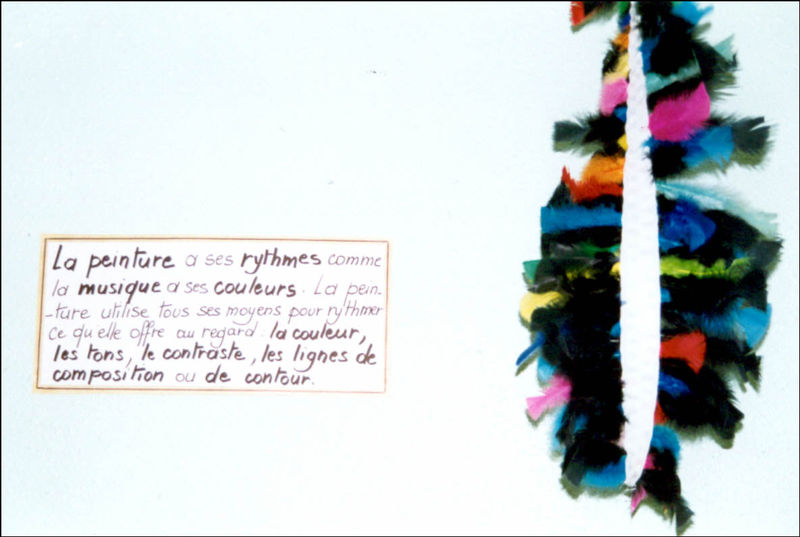 La peinture a ses rythmes comme
la musique a ses couleurs. La pein-
-ture utilise tous ses moyens pour rythmer
ce qu'elle offre au regard : la couleur,
les tons, le contraste, les lignes de
composition ou de contour.